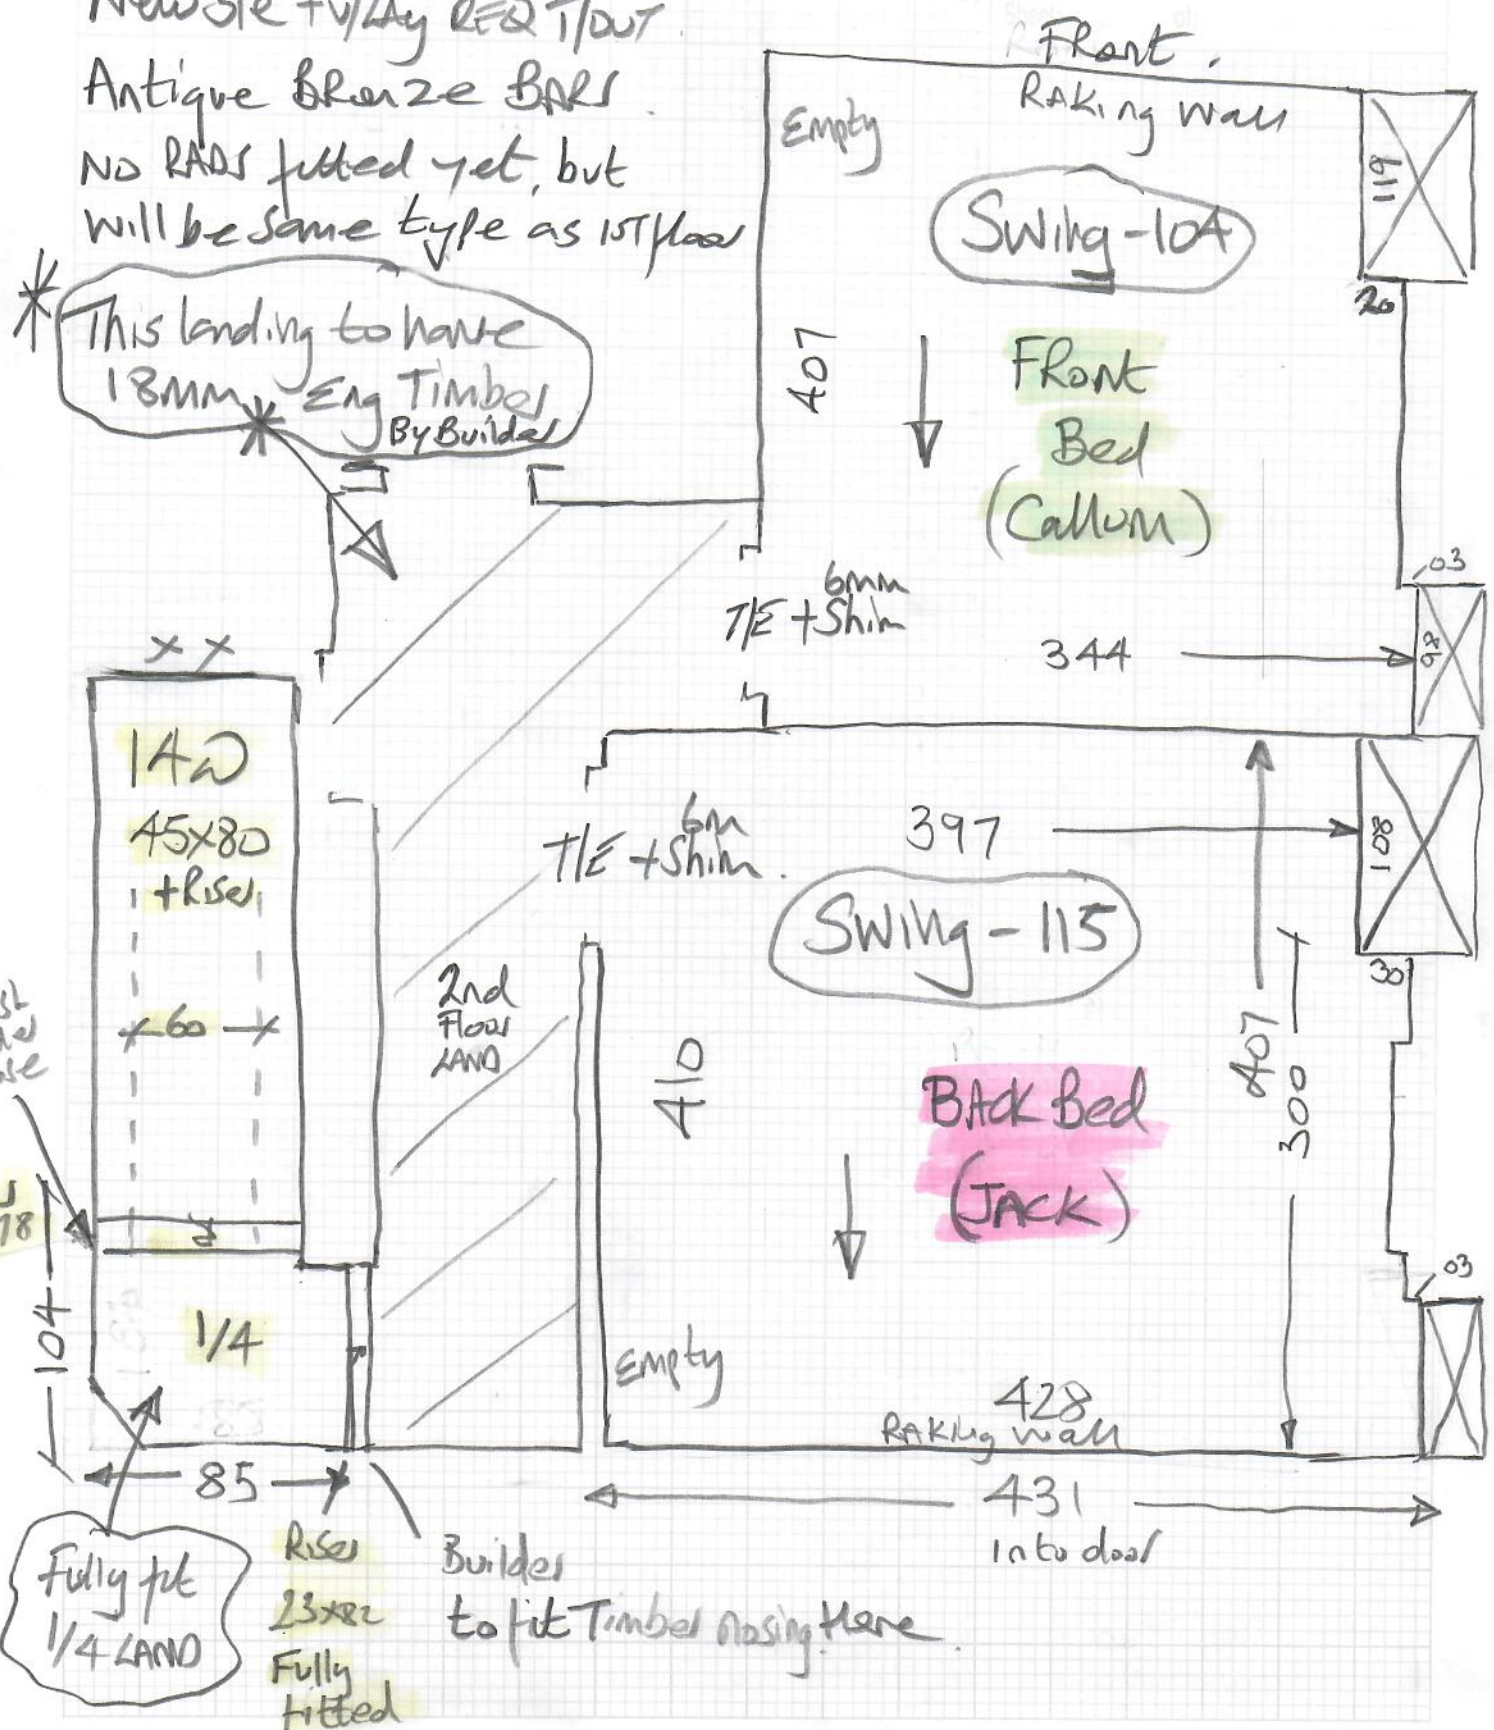 REQ T/OUT
Antique Bronze BARS
NO RADS fitted yet, but
will be same type as 1ST floor
This landing to have
18mm Eng Timber
By Builder
Front.
RAKing Wall
Empty
Swing-104
119
20
407
FRont
Bed
(Callum)
6mm
T/E + Shim
344
03
98
X X
14D
45x80
+Riser
60
2nd
Floor
LAND
6m
T/E + Shim.
397
108
Swing-115
30
407
300
410
BACK Bed
(JACK)
03
18
104
1/4
Empty
428
RAKing wall
85
431
into door
Fully fit
1/4 LAND
Riser
23x82
Fully
fitted
Builder
to fit Timber nosing Here.